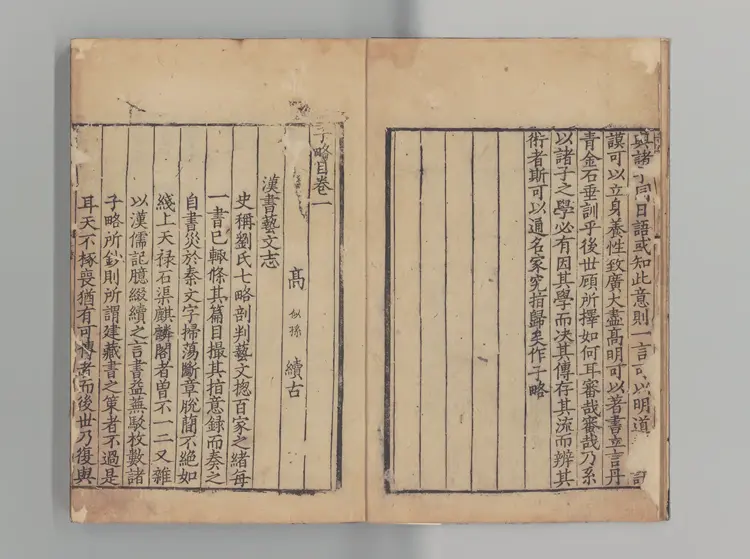 與諸子同日語或知此意則一言可以明道
謨可以立身養性致廣大盡高明可以著書立言丹
青金石垂訓乎後世顧所擇如何耳審哉審哉乃系
以諸子之學必有因其學而決其傳存其流而辨其
術者斯可以通名家究指歸矣作子略
子略目卷一
高 似孫 續古
漢書藝文志
史稱劉氏七略剖判藝文揔百家之緒每
一書已輒條其篇目撮其指意録而奏之
自書災於秦文字掃蕩斷章脫簡不絕如
綫上天禄石渠麒麟閣者曾不一二又雜
以漢儒記臆綴續之言書益蕪駮枚數諸
子略所鈔則所謂建藏書之策者不過是
耳天不椓喪猶有可傳者而後世乃復與